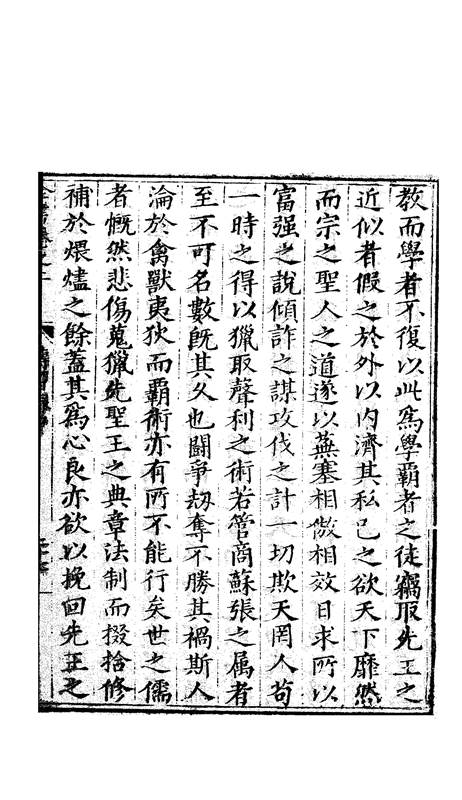 教而學者不復以此爲學霸者之徒竊取先王之
近似者假之於外以內濟其私已之欲天下靡然
而宗之聖人之道遂以蕪塞相倣相效日求所以
富强之說傾詐之謀攻伐之計一切欺天罔人苟
一時之得以獵取聲利之術若管商蘇張之属者
至不可名數旣其久也鬪爭刼奪不勝其禍斯人
淪於禽獸夷狄而霸術亦有所不能行矣世之儒
者慨然悲傷蒐獵先聖王之典章法制而掇拾修
補於煨燼之餘葢其爲心良亦欲以挽回先王之